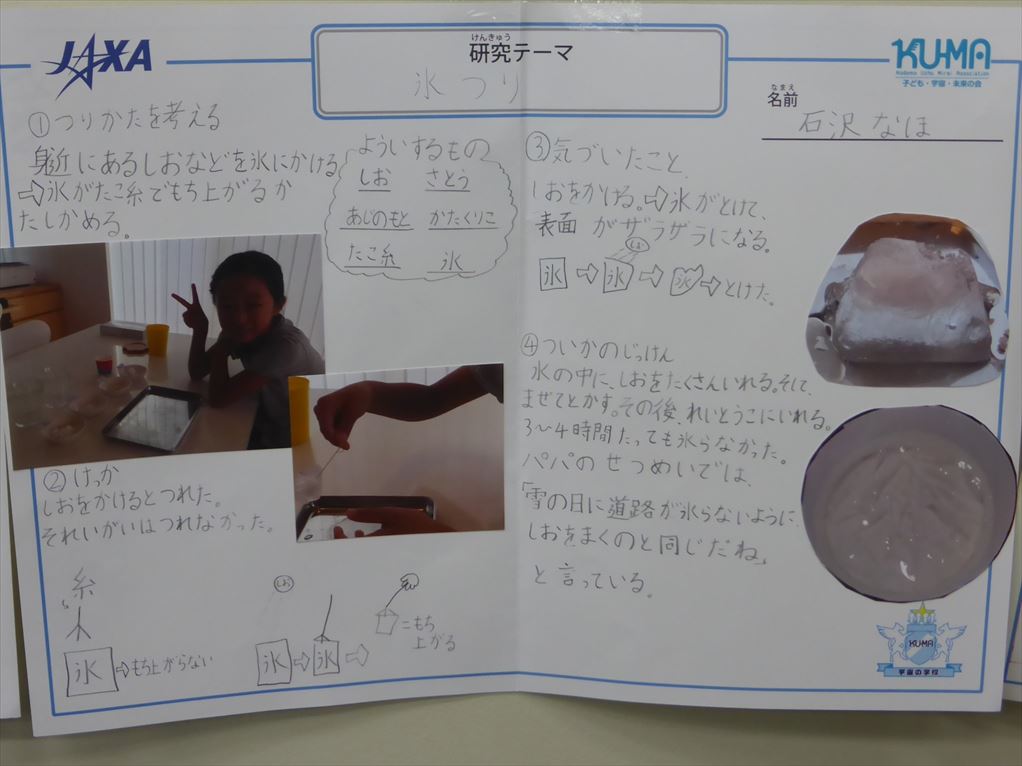 JAXA
けんきゅう
研究テーマ
氷つり
KU-MA
Kodomo Uchu Mirai Association
子ども・宇宙・未来の会
なまえ
名前
石沢 なほ
①つりかたを考える
身近にあるしおなどを氷にかける
⇨氷がたこ糸でもち上がるか
たしかめる。
よういするもの
しお さとう
あじのもと かたくりこ
たこ糸 氷
②けっか
しおをかけるとつれた。
それいがいはつれなかった。
糸
氷⇨もち上がらない
しお
氷⇨氷⇨
=もち
上がる
③気づいたこと
しおをかける。⇨氷がとけて、
表面がザラザラになる。
しお
氷⇨氷⇨氷⇨とけた。
④ついかのじっけん
水の中に、しおをたくさんいれる。そして
まぜてとかす。その後、れいとうこにいれる。
3~4時間たっても氷らなかった。
パパのせつめいでは、
「雪の日に道路が氷らないように、
しおをまくのと同じだね」
と言っている。
KU-MA
宇宙の学校